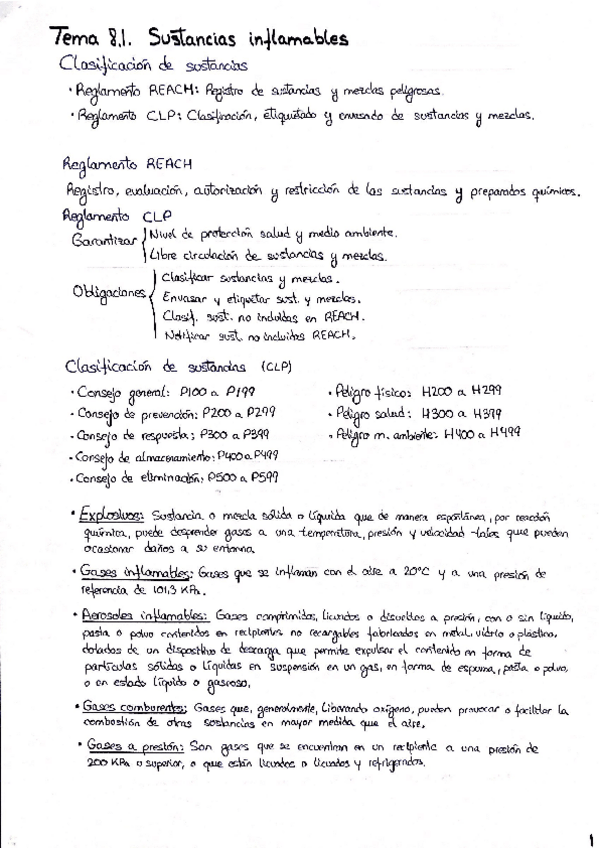 Tema 8.1. Sustancias inflamables
Clasificación de sustancias
· Reglamento REACH: Registro de sustancias y mezclas peligrosas.
· Reglamento CLP: Clasificación, etiquetado y envasado de sustancias y mezclas.
Reglamento REACH
Registro, evaluación, autorización y restricción de las sustancias y preparados químicos.
Reglamento CLP
Garantizar
Nivel de protección salud y medio ambiente.
Libre circulación de sustancias y mezclas.
Obligaciones
Clasificar sustancias y mezclas.
Envasar y etiquetar sust. y mezclas.
Clasif. sust. no incluidas en REACH.
Notificar sust. no incluidas REACH.
Clasificación de sustancias (CLP)
· Consejo general: P100 a P199
· Consejo de prevención: P200 a P299
· Consejo de respuesta: P300 a P399
· Consejo de almacenamiento: P400 a P499
· Consejo de eliminación: P500 a P599
· Peligro físico: H200 a H299
· Peligro salud: H300 a H399
· Peligro m. ambiente: H400 a H499
· Explosivos: Sustancia o mezcla sólida o líquida que de manera espontánea, por reacción
química, puede desprender gases a una temperatura, presión y velocidad tales que pueden
ocasionar daños a su entorno.
· Gases inflamables: Gases que se inflaman con el aire a 20°C y a una presión de
referencia de 101,3 KPa.
· Aerosoles inflamables: Gases comprimidos, licuados o disueltos a presión, con o sin líquido,
pasta o polvo contenidos en recipientes no recargables fabricados en metal, vidrio o plástico,
dotados de un dispositivo de descarga que permite expulsar el contenido en forma de
partículas sólidas o líquidas en suspensión en un gas, en forma de espuma, pasta o polvo,
o en estado líquido o gaseoso.
· Gases comburentes: Gases que, generalmente, liberando oxígeno, pueden provocar o facilitar la
combustión de otras sustancias en mayor medida que el aire.
· Gases a presión: Son gases que se encuentran en un recipiente a una presión de
200 KPa o superior, o que están licuados o licuados y refrigerados.
1